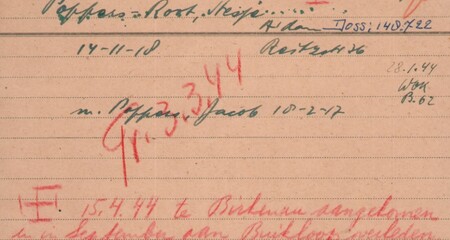 Poppers=Rost, Nesje......
Adam Doss: 148722
14-11-18
Reitzstr 36
28.1.44
WBK
B.62
gr. 3.3.44
m. Poppers, Jacob 18-2-17
15.4.44 te Birkenau aangekomen
en in September aan Buikloop overleden